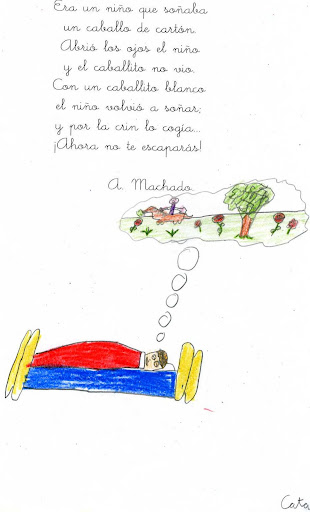 Era un niño que soñaba
un caballo de cartón.
Abrió los ojos el niño
y el caballito no vio.
Con un caballito blanco
el niño volvió a soñar;
y por la crin lo cogía...
¡Ahora no te escaparás!
A. Machado
Cata